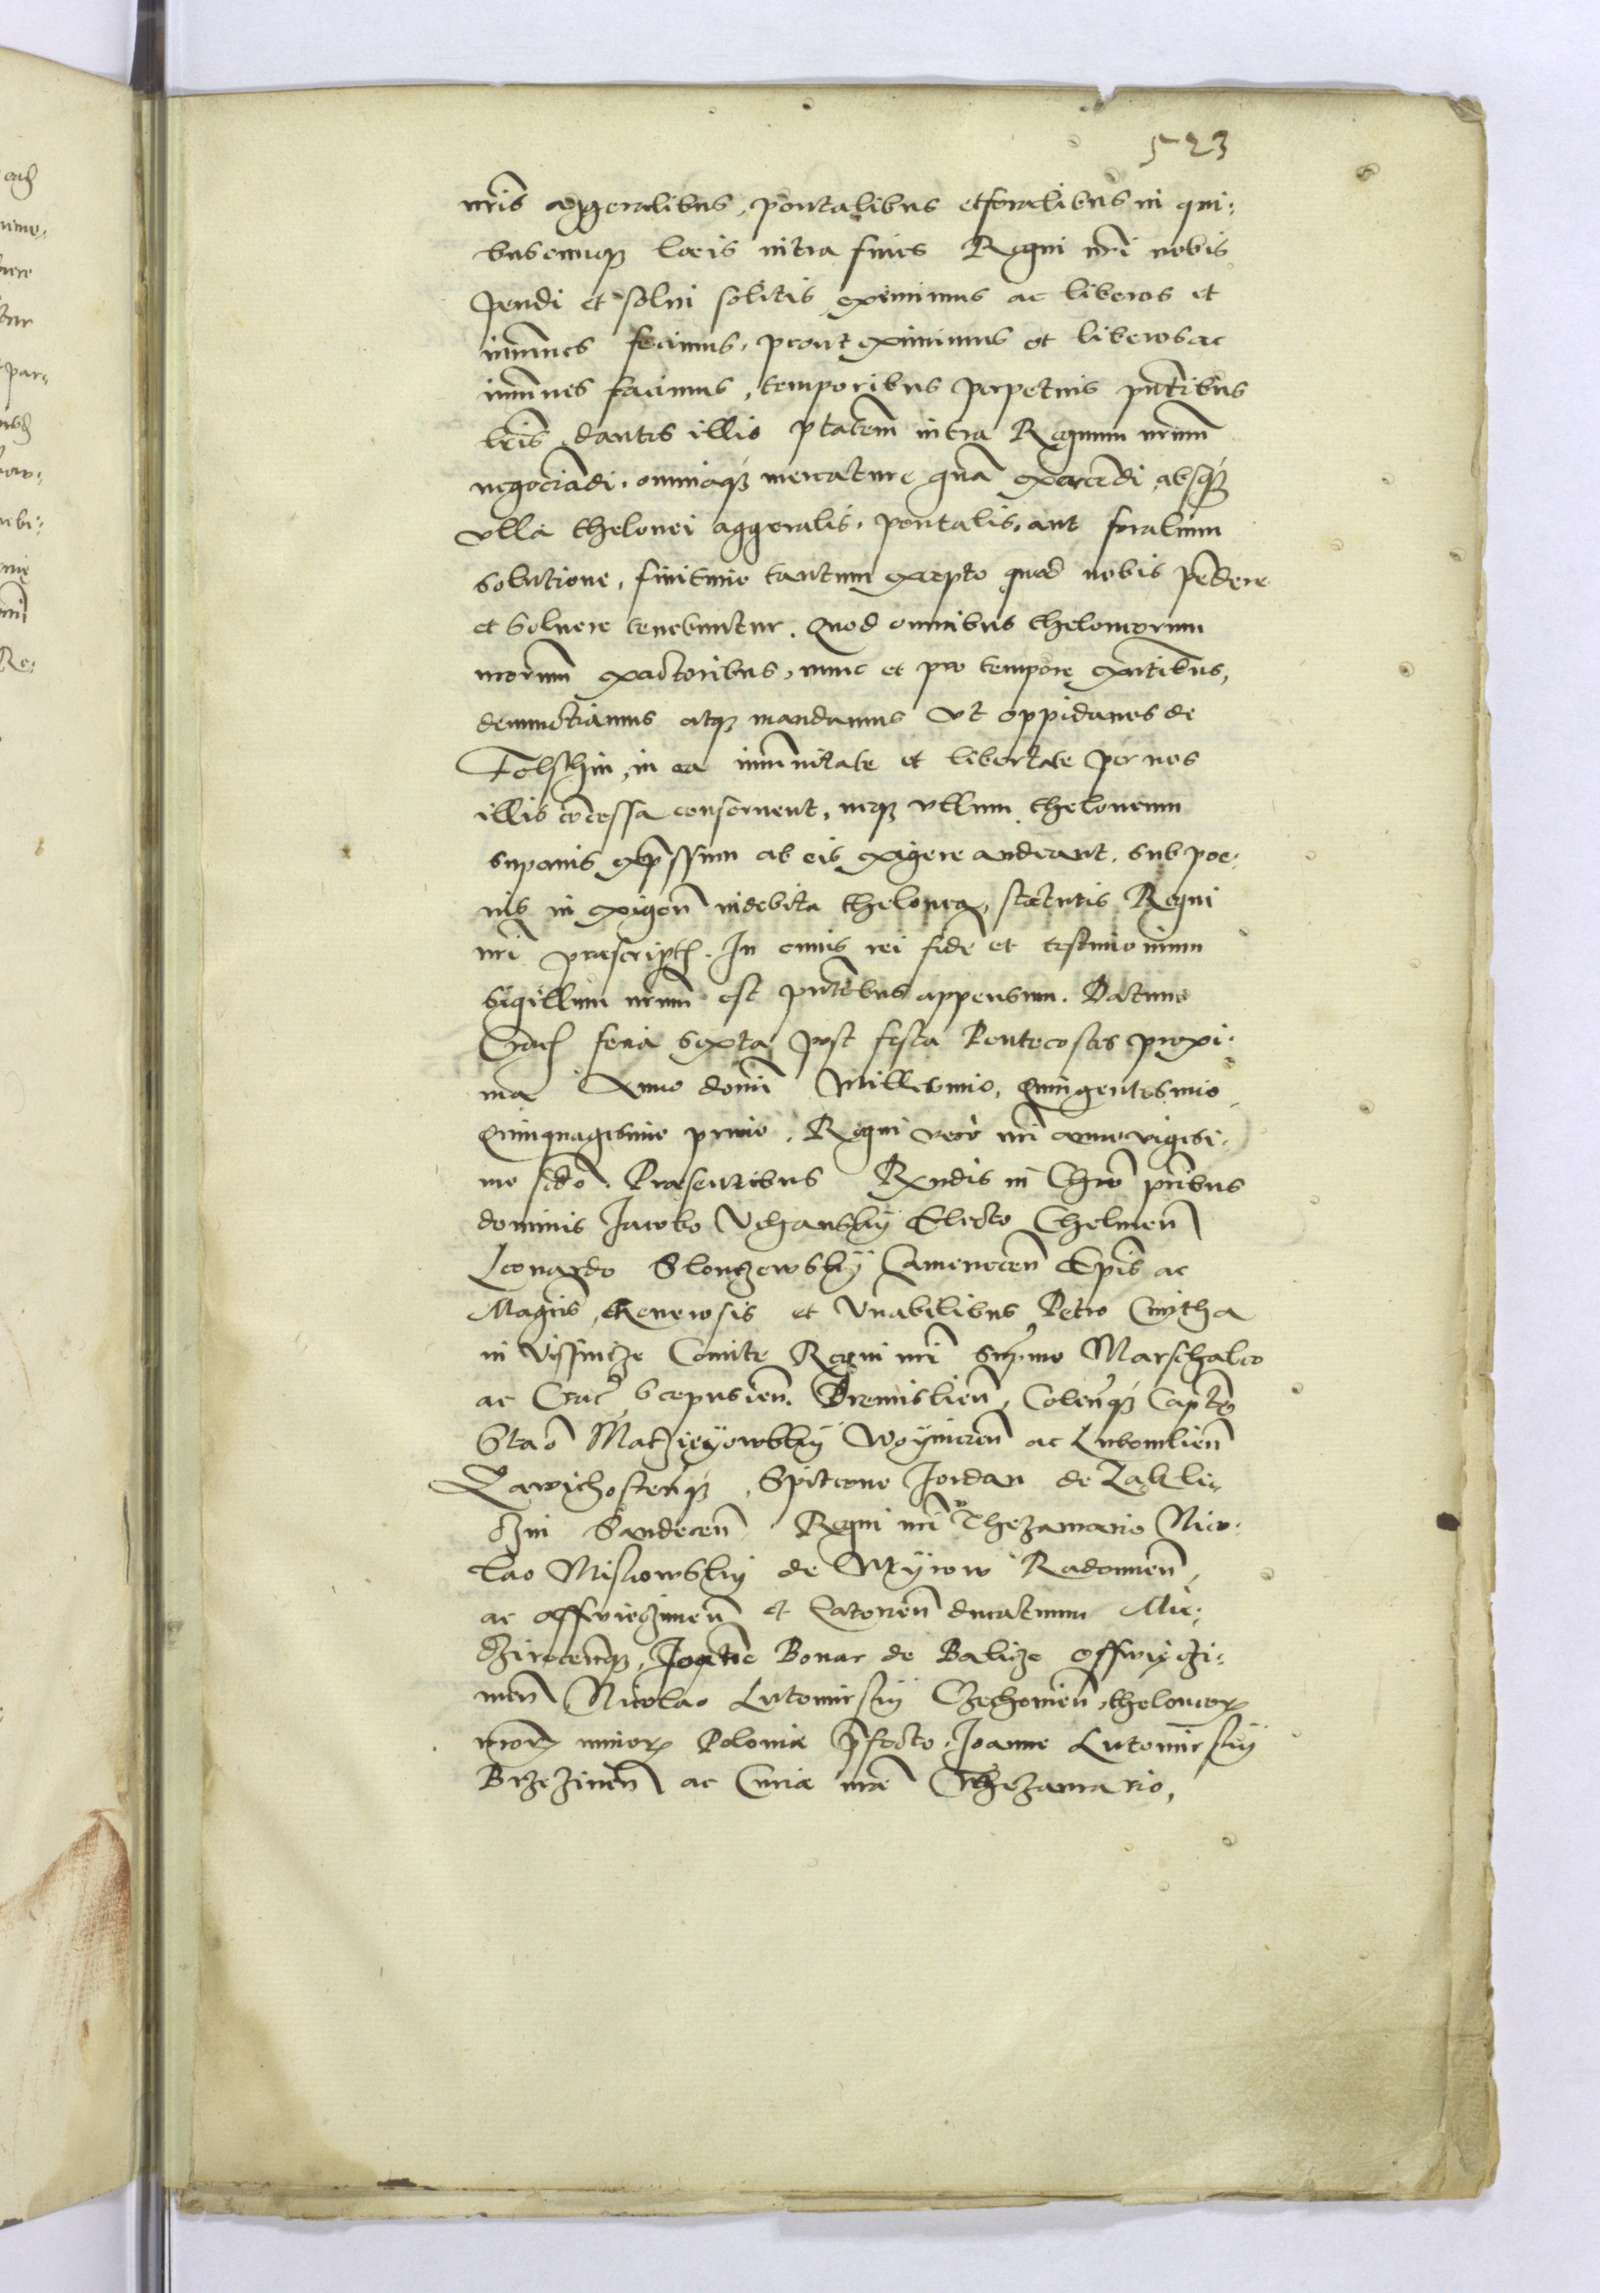 523
nris aggeralibus, pontalibus et foralibus in qui:
buscunq locis intra fines Regni nri nobis
pendi et solui solitis eximimus ac liberos et
immunes facimus, prout eximimus et liberos ac
immunes facimus, temporibus perpetuis pntibus
lris dantes illis ptatem intra Regnum nrum
negociãdi, omniaq mercature exercendi absq
vlla thelonei aggeralis, pontalis, aut foralium
solutione, finitimo tantum excepto quod nobis pẽdere
et soluere tenebuntur. Quod omnibus theloneorum
nrorum exactoribus, nunc et pro tempore exntibus,
denunctiamus atq mandamus vt oppidanos de
Tolschin, in ea immunitate et libertate per nos
illis cõcessa conseruent, neq vllum theloneum
superius exp̃ssum ab eis exigere audeant, sub poe:
nis in exigen indebita thelonea, statutis Regni
nri praescript. In cuius rei fidẽ et testimonium
sigillum nrum est pntibus appensum. Datum
Crac feria sexta post festa Pentecostes proxi:
ma Anno domi Millesimo, Quingentesimo
Quinquagesimo primo, Regni vero nri anno vigesi:
mo scdo. Praesentibus Rẽndis in Chro prĩbus
dominis Jacobo Vchansky Electo Chelmen
Leonardo Slonczewsky Camenecen Epis ac
Magcis, Generosis et Vnabilibus Petro Cmitha
in Vissnicze Comite Regni nri Supmo Marschalco
ac Crac, Scepusien. Premislien, Colenq Capto
Stao Maczieyowsky Woynicen ac Lubomlien
Zawichostenq, Spitcone Jordan de Zakli:
czin Sandecen Regni nri Thezaurario Nico:
lao Miskowsky de Myrow Radomien,
ac Osswieczimen et Zatoren ducatuum
Joañe Bonar de Balicze Osswieczi:
men Nicolao Lutomirsky Czechomien, theloneor
nror minor Polonie p̃fecto, Joanne Lutomirsky
Brzezinen ac Curie nre Thezaurario,